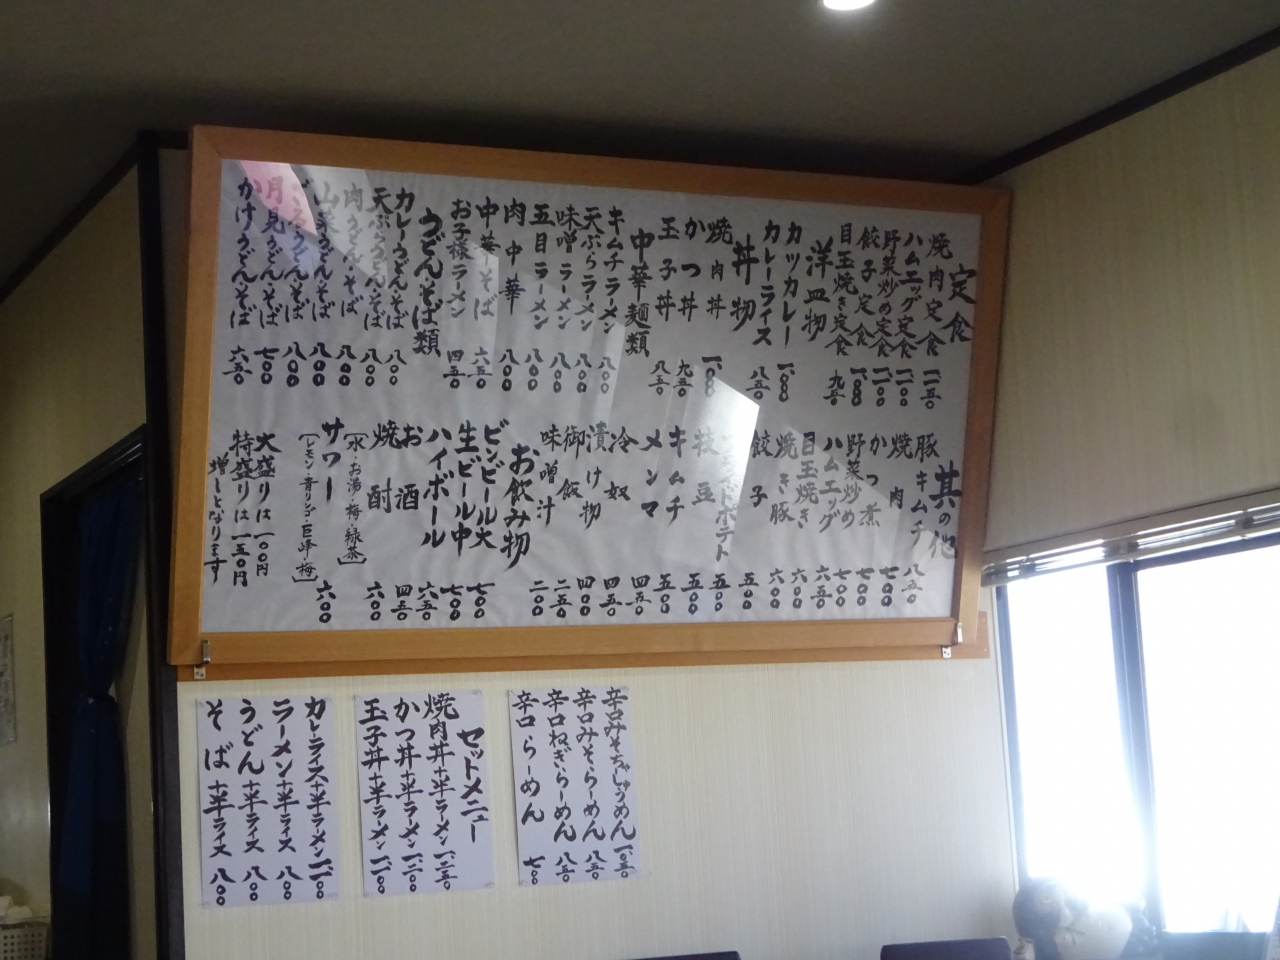 定食
焼肉定食 一一五〇
ハムエッグ定食 一一〇〇
野菜炒め定食 一一〇〇
餃子定食 一、〇〇〇
目玉焼き定食 九五〇
洋皿物
カツカレー 一、〇〇〇
カレーライス 八五〇
丼物
焼肉丼 一、〇〇〇
かつ丼 九五〇
玉子丼 八五〇
中華麺類
キムチラーメン 八〇〇
天ぷらラーメン 八〇〇
味噌ラーメン 八〇〇
五目ラーメン 八〇〇
肉中華 八〇〇
中華そば 六五〇
お子様ラーメン 四五〇
うどん・そば類
カレーうどん・そば 八〇〇
天ぷらうどん・そば 八〇〇
肉うどん・そば 八〇〇
山菜うどん・そば 八〇〇
ざるうどん・そば 八〇〇
月見うどん・そば 七〇〇
かけうどん・そば 六五〇
其の他
豚キムチ 八五〇
焼肉 七〇〇
かつ煮 七〇〇
野菜炒め 七〇〇
ハムエッグ 六五〇
目玉焼き 六〇〇
焼き豚 六〇〇
餃子 五〇〇
ポテト 五〇〇
枝豆 五〇〇
キムチ 五〇〇
メンマ 四五〇
冷奴 四五〇
漬け物 四〇〇
御飯 二五〇
味噌汁 二〇〇
お飲み物
ビンビール大 七〇〇
生ビール中 七〇〇
ハイボール 六五〇
お酒 四五〇
焼酎 六〇〇
［水・お湯・梅・緑茶］
サワー 六〇〇
［レモン・青リンゴ・巨峰・梅］
大盛りは一〇〇円
特盛りは一五〇円
増しとなります
辛口みそちゃーしゅうめん 一、〇五〇
辛口みそらーめん 八五〇
辛口ねぎらーめん 八五〇
辛口らーめん 七〇〇
セットメニュー
焼肉丼+半ラーメン 一、二五〇
かつ丼+半ラーメン 一、二〇〇
玉子丼+半ラーメン 一、一〇〇
カレーライス+半ラーメン 一、一〇〇
ラーメン+半ライス 八〇〇
うどん+半ライス 八〇〇
そば+半ライス 八〇〇